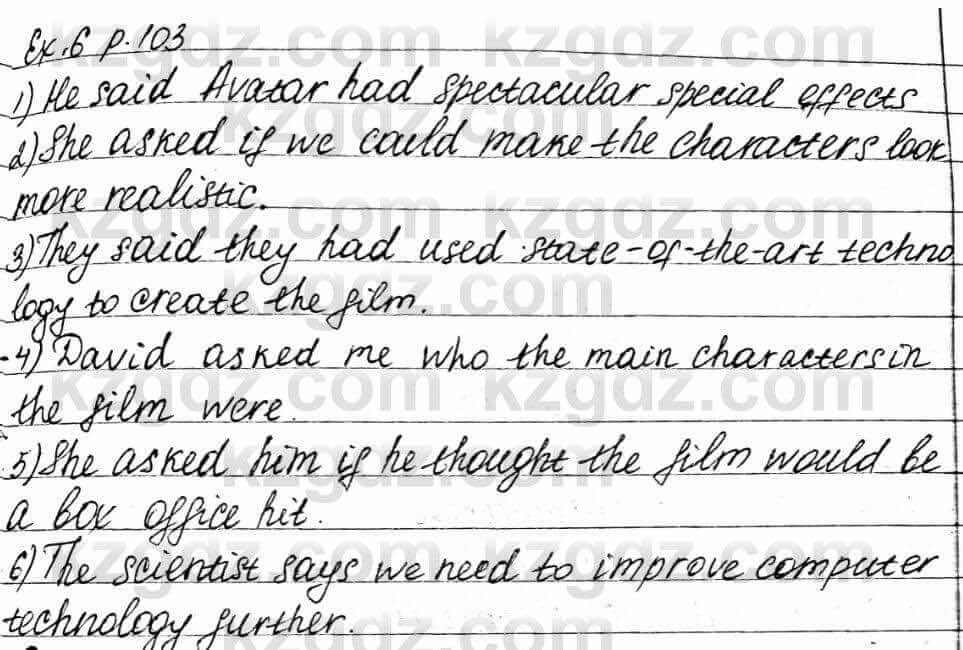 Ex.6 p.103
1) He said Avatar had spectacular special effects
2) She asked if we could make the characters look
more realistic.
3) They said they had used state-of-the-art techno
logy to create the film.
4) David asked me who the main characters in
the film were.
5) She asked him if he thought the film would be
a box office hit.
6) The scientist says we need to improve computer
technology further.
kzgdz.com